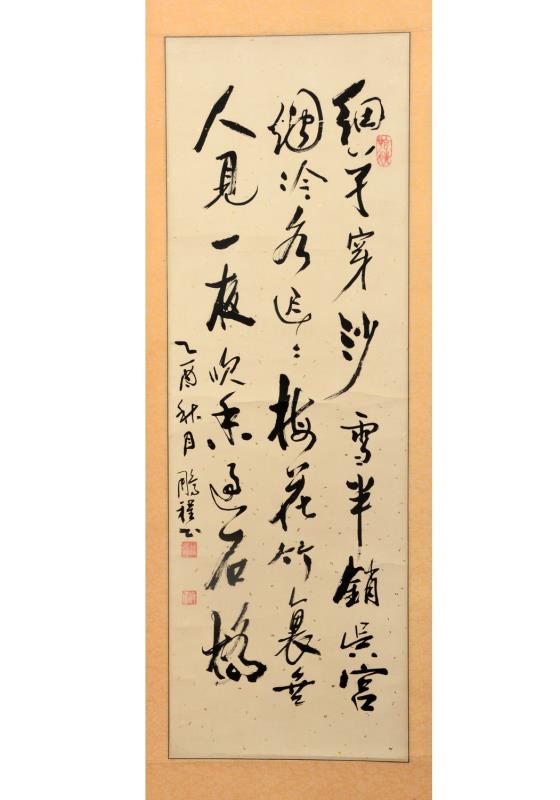 細草穿沙雪半銷吳宮
烟冷水迢〻梅花竹裏無
人見一夜吹香過石橋
乙酉秋月 鵬程书